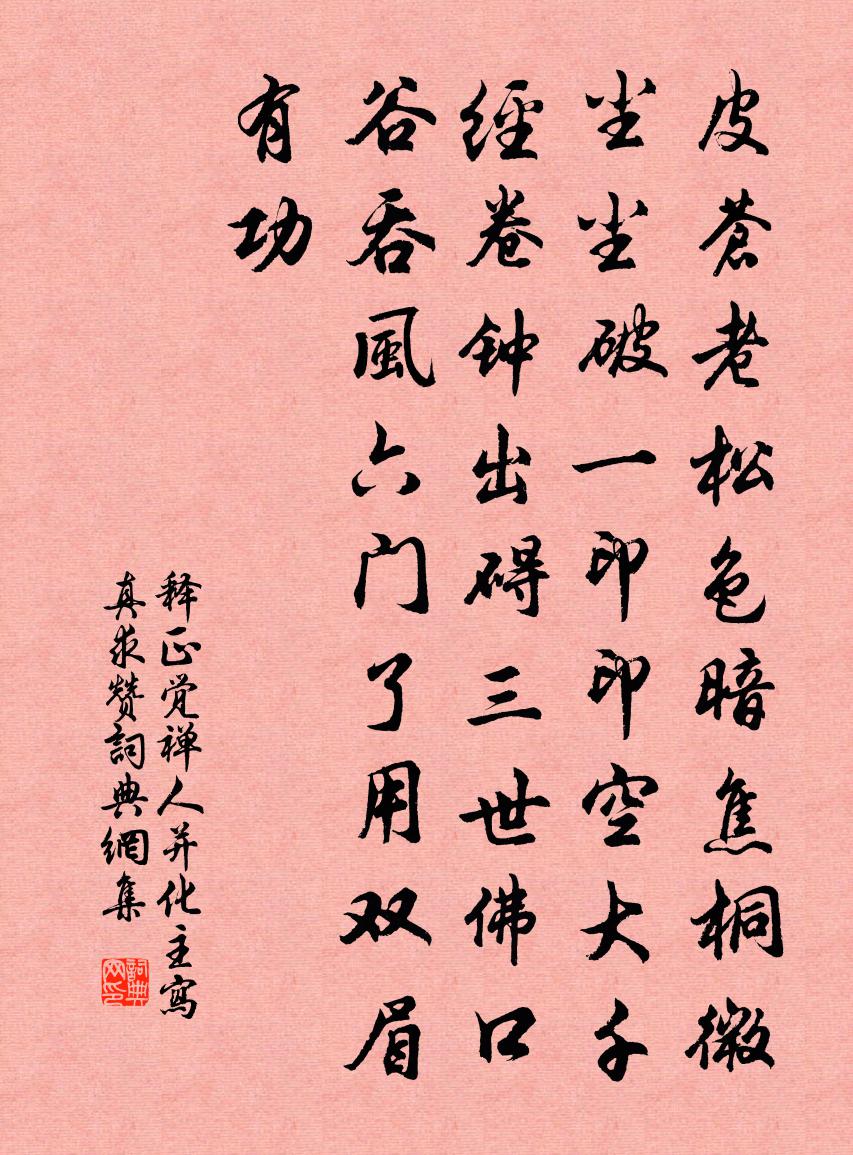 皮蒼老松色暗焦桐微
尘尘破一印印空大千
經卷钟出碍三世佛口
谷吞風六门了用双眉
有功
释正觉禅人并化主寫
真求赞詞典網集
詞典
网印